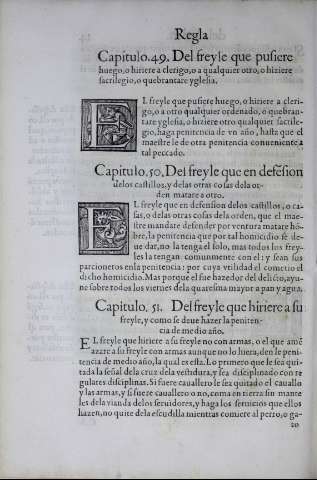 Regla
Capitulo.49. Del freyle que pusiere
huego, o hiriere a clerigo, o a qualquier otro, o hiziere
sacrilegio, o quebrantare yglesia.
EL freyle que pusiere huego, o hiriere a cleri-
go, a o otro qualquier ordenado, o quebran-
tare yglesia, o hiziere otro qualquier sacrile-
gio, haga penitencia de vn año, hasta que el
maestre le de otra penitencia conueniente a
tal peccado.
Capitulo.50. Del freyle que en defēsion
delos castillos, y delas otras cosas dela or-
den matare a otro.
EL freyle que en defension delos castillos, o ca-
sas, o delas otras cosas dela orden, que el mae-
stre mandare defender por ventura matare hō-
bre, la penitencia que por tal homicidio se de-
ue dar, no la tenga el solo, mas todos los frey-
les la tengan comunmente con el: y sean sus
parcioneros enla penitencia: por cuya vtilidad el cometio el
dicho homicidio. Mas porque el fue hazedor del delicto, ayu-
ne sobre todos los viernes dela quaresma mayor a pan y agua.
Capitulo. 51. Del freyle que hiriere a su
freyle, y como se deue hazer la peniten-
cia de medio año.
EL freyle que hiriere a su freyle no con armas, o el que amē
azare a su freyle con armas aunque no lo hiera, den le peni-
tencia de medio año, la qual es esta. Lo primero que le sea qui-
tada la señal dela cruz dela vestidura, y sea disciplinado con re
gulares disciplinas. Si fuere cauallero le sea quitado el cauallo
y las armas, y si fuere cauallero o no, coma en tierra sin mante
les dela vianda delos seruidores, y haga los seruicios que ellos
hazen, no quite dela escudilla mientras comiere al perro, o ga-
to